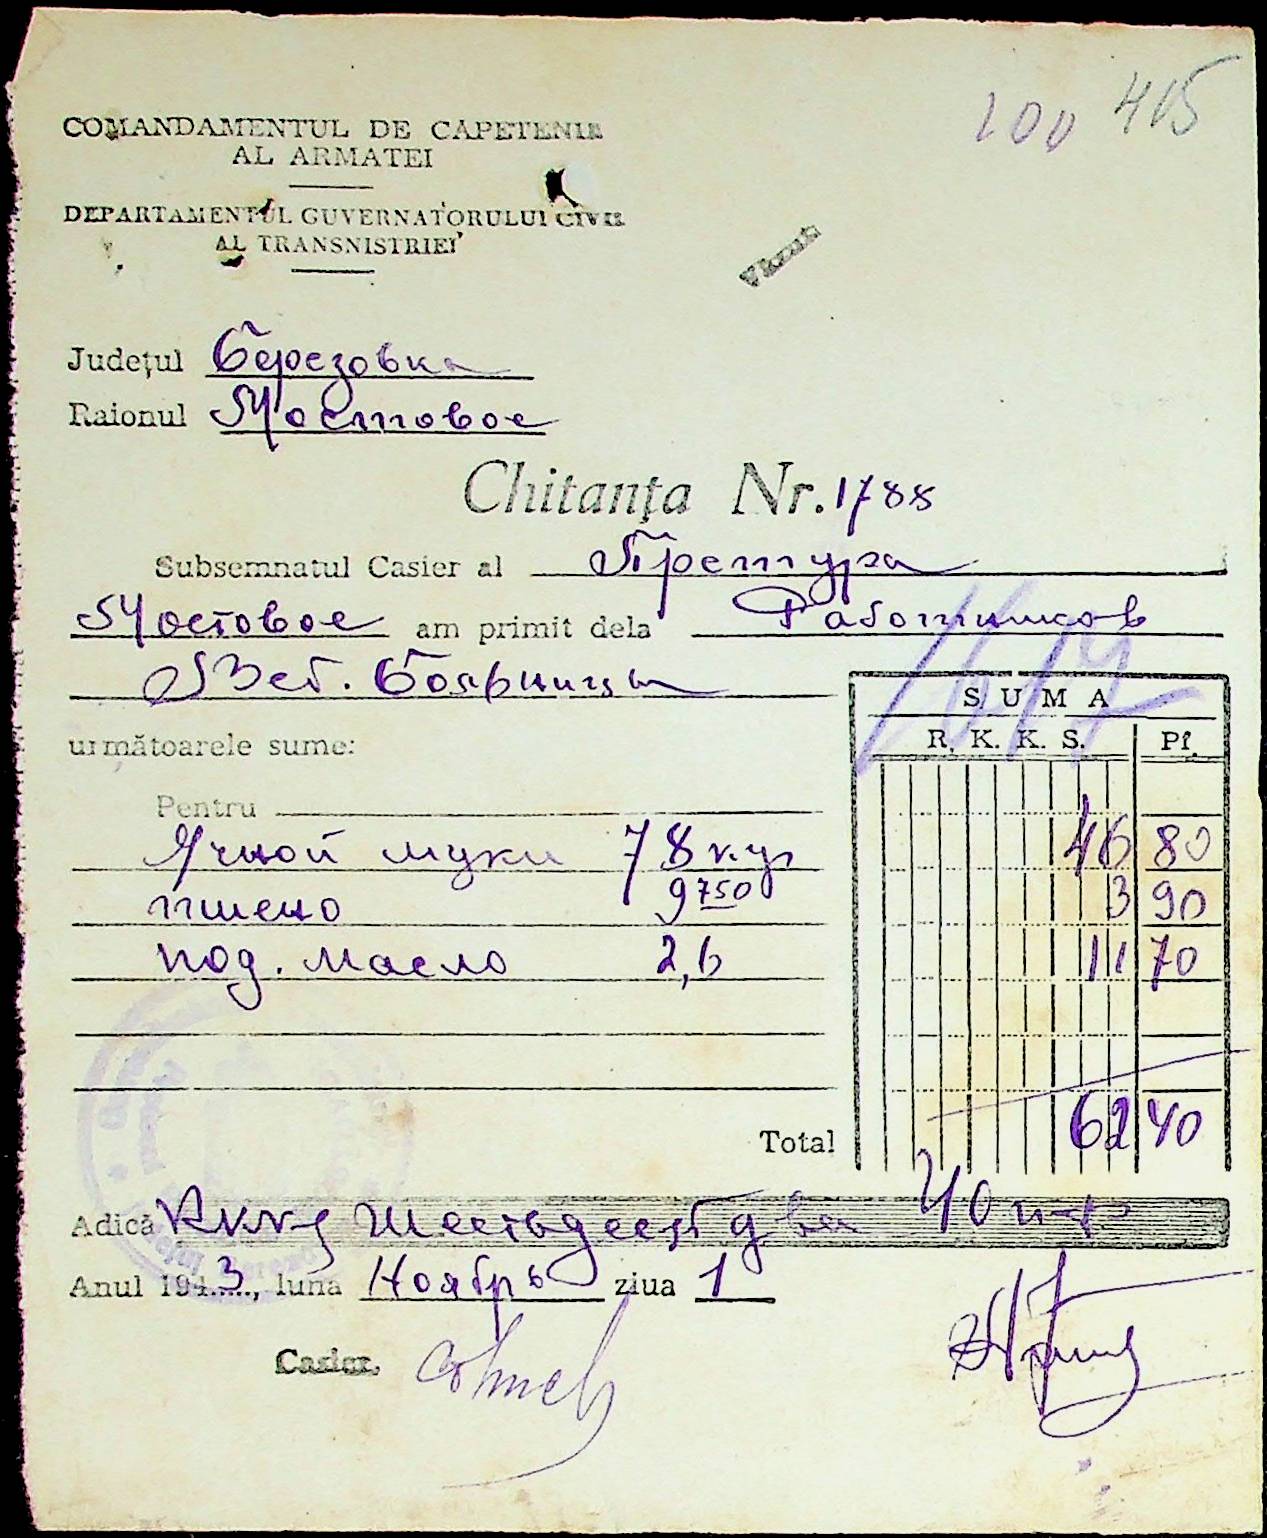 100 415
COMANDAMENTUL DE CAPETENIE
AL ARMATEI
DEPARTAMENTUL GUVERNATORULUI CIVIL
AL TRANSNISTRIEI
Județul Березовка
Raionul Мостовое
Chitanța Nr. 1788
Subsemnatul Casier al Претура
Мостовое am primit dela Работников
Вет. Боярницы
următoarele sume:
SUMA
R. K. K. S. Pf.
Pentru
Ячной муки 78 кгр 46 80
пшено 9750 3 90
под. масло 2,6 11 70
Total 62 40
Adică Шестьдесят два 40 пф
Anul 1943, luna Ноябрь ziua 1
Casier,